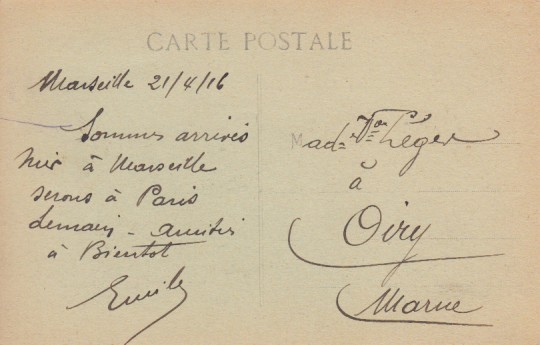 CARTE POSTALE
Marseille 21/4/16
Sommes arrivés
hier à Marseille
serons à Paris
demain - Amitiés
à Bientot
Emile
Mad= Vve Léger
à
Oiry
Marne